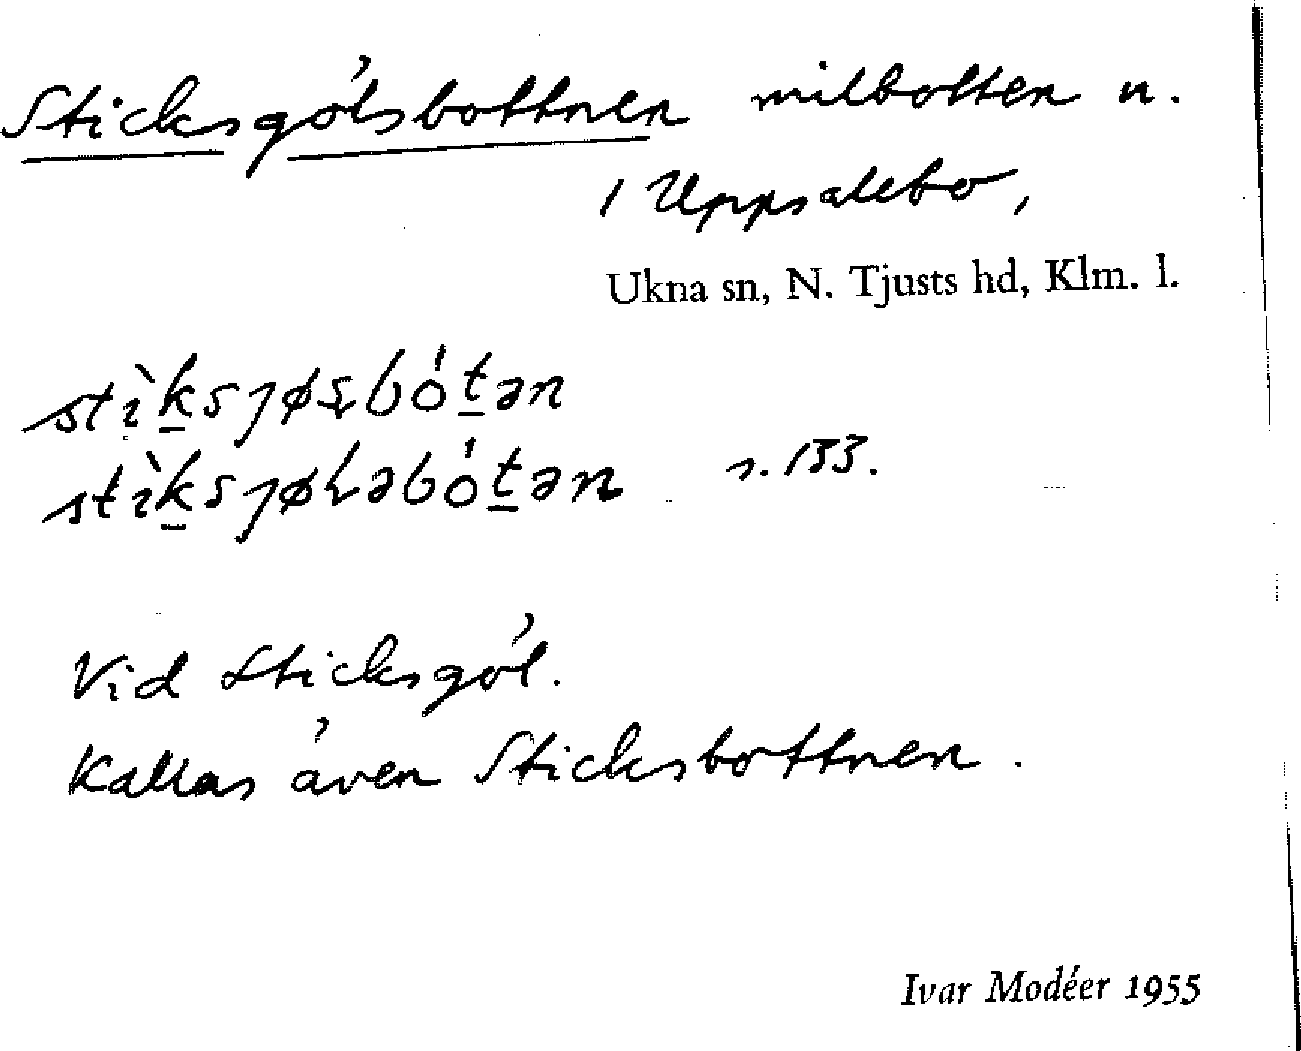 Sticksgölsbottnen milbotten n.
i Uppsalebo,
Ukna sn, N. Tjusts hd, Klm. l.
s. 133.
Vid Sticksgöl.
Kallas även Sticksbottnen.
Ivar Modéer 1955